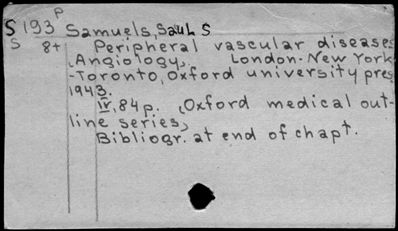 P
S 193 Samuels, Saul S
S 8+ Peripheral vascular diseases
(Angiology). London-New York
-Toronto, Oxford university pres
1943.
IV, 84 p. (Oxford medical out-
line series)
Bibliogr. at end of chapt.